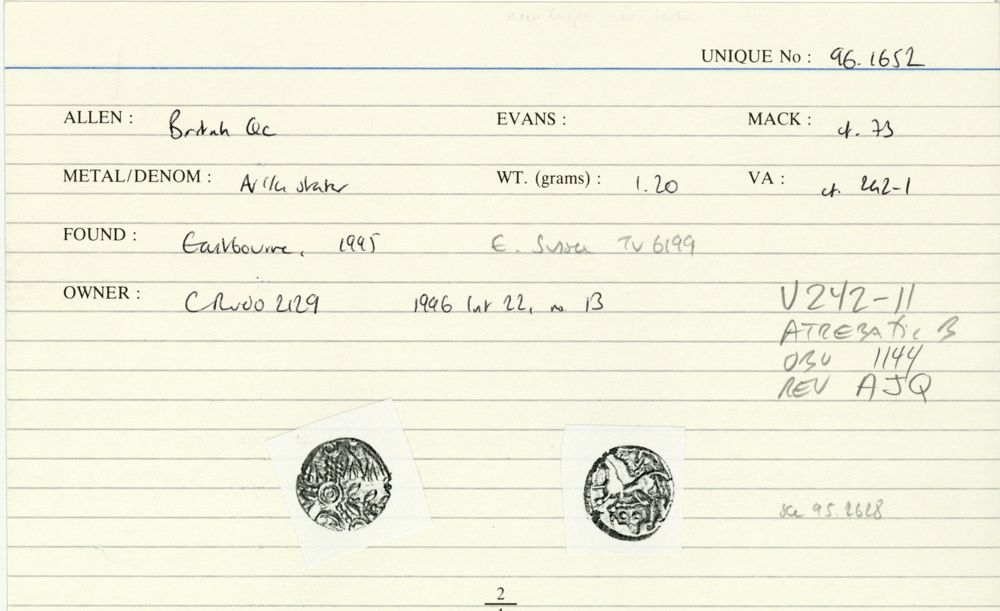 UNIQUE No : 96.1652
ALLEN : British Qc EVANS : MACK : cf. 73
METAL/DENOM : WT. (grams) : 1.20 VA : cf. 242-1
FOUND : Eastbourne, 1995 E. Sussex TV 6199
OWNER : C Rudd 2129 1996 List 22, no. 13
V242-11
ATREBATIC B
OBV 1144
REV AJQ
see 95.2628
2